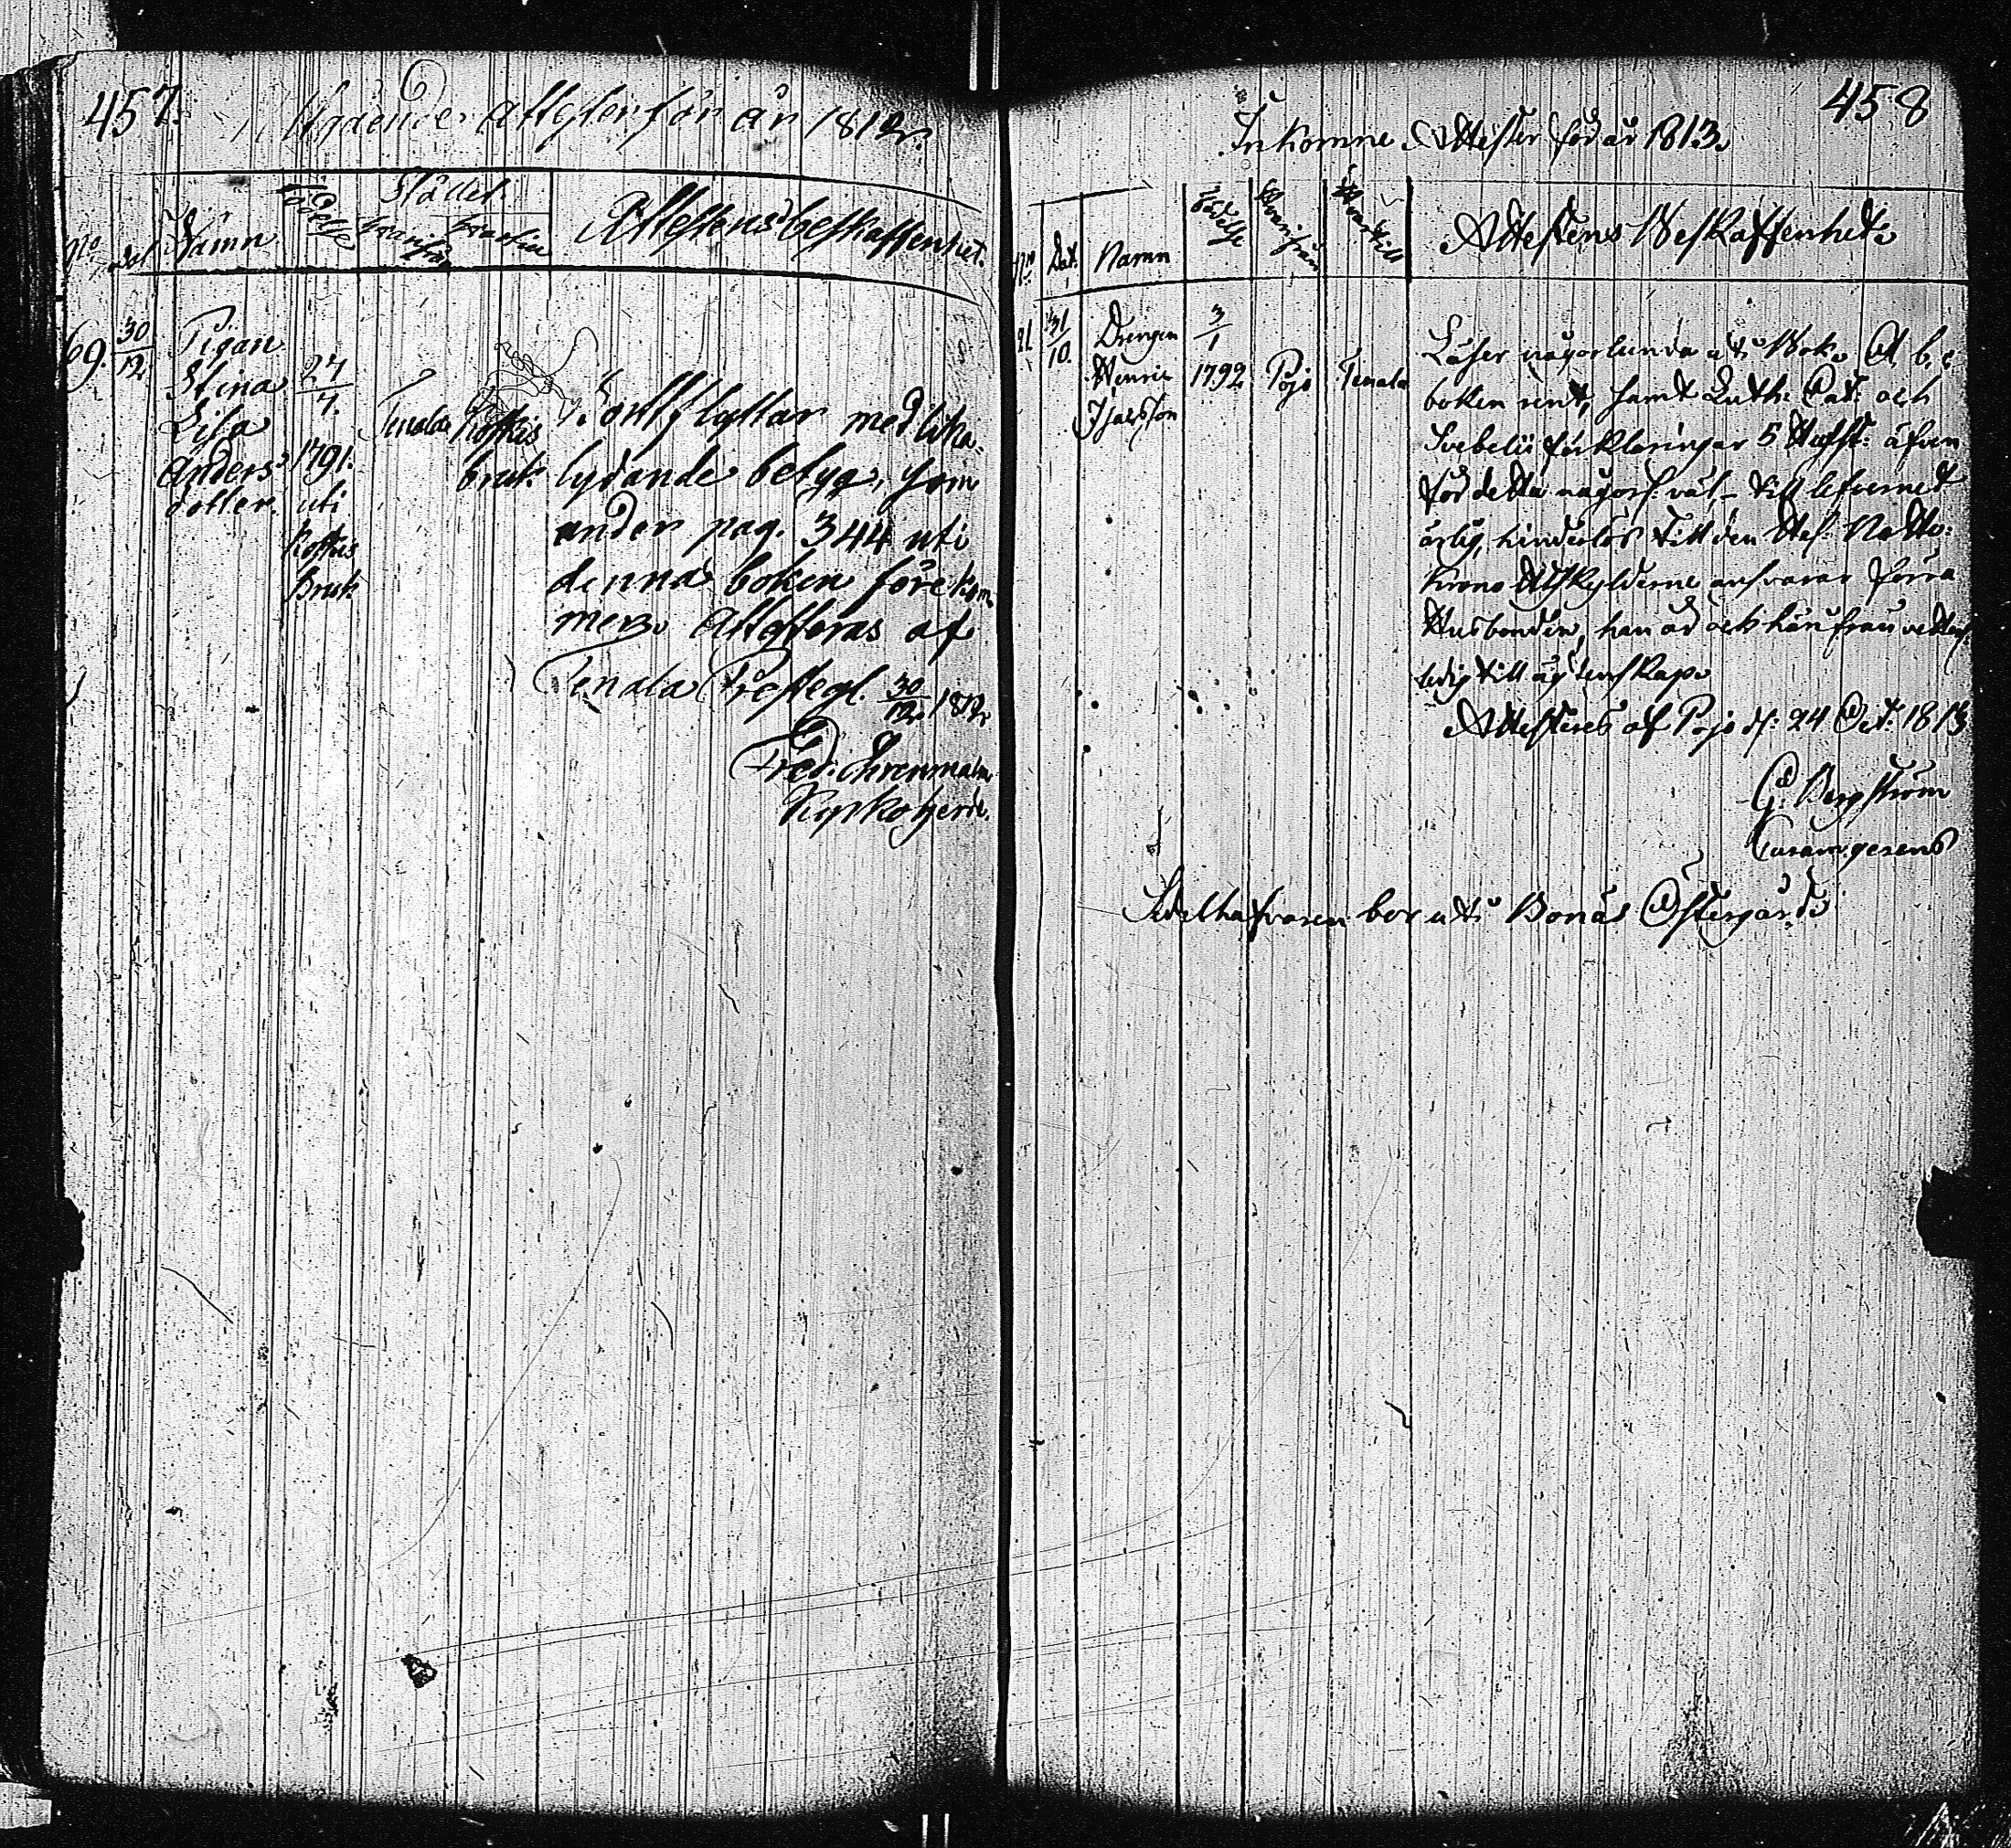 457.
Utgående attester för år 1812.
No
Dat
Namn
Födelse
Stället.
hvarifrån
hvartill
Attestens beskaffenhet.
69.
30/12
Pigan
Stina
Lisa
Anders
dotter.
24/4.
1791.
uti
Koskis
Bruk
Tenala
Koskis
bruk
Bortflyttar med lika
lydande betyg, som
under pag. 344 uti
denna boken förekom
mer. Attesteras af
Tenala Prestegl. 30/12 1812
Fred. Ehrenmalm
Kyrkoherde.
458
Inkomne Attester för år 1813.
No
Dat.
Namn
Födelse
Hvarifrån
Hvartill
Attestens Beskaffenhet.
91
31/10.
Drengen
Henric
3/1
1792
Pojo
Tenala
Läser någorlunda uti Bok, A b c
boken rent, samt Luth: Cat: och
Svebelii förklaringar 5 Hufst: äfven
för detta någorl: väl, till lefvernet
ärlig, hinderlös till den
Krono Utskylderne ansvarar förra
Husbonden, han är och härifrån
ledig till ägtenskap.
Attesteres af Pojo d: 24 Oct: 1813
G: Bergström
Sedelhafvaren bor uti Bonäs Östergård.